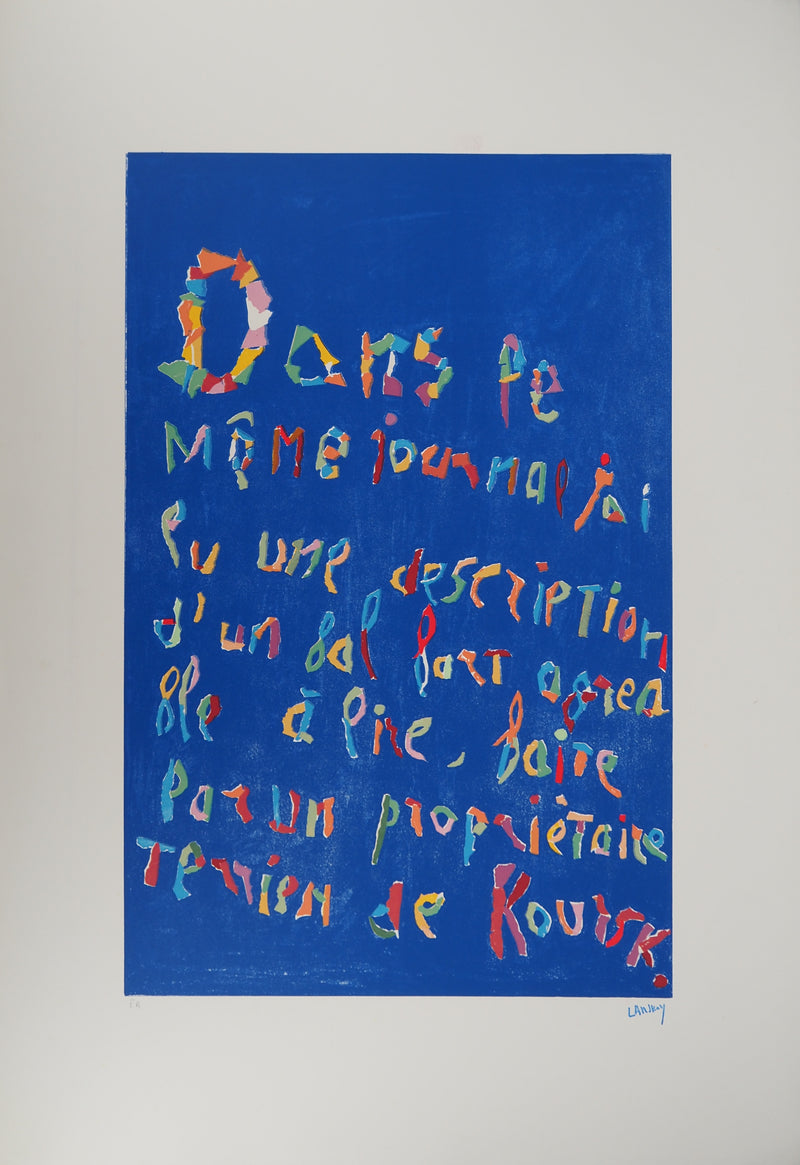 Dans le
même journal j'ai
lu une description
d'un bal fort agréa
ble à lire, faire
par un propriétaire
terrien de Koursk.
LANSKOY